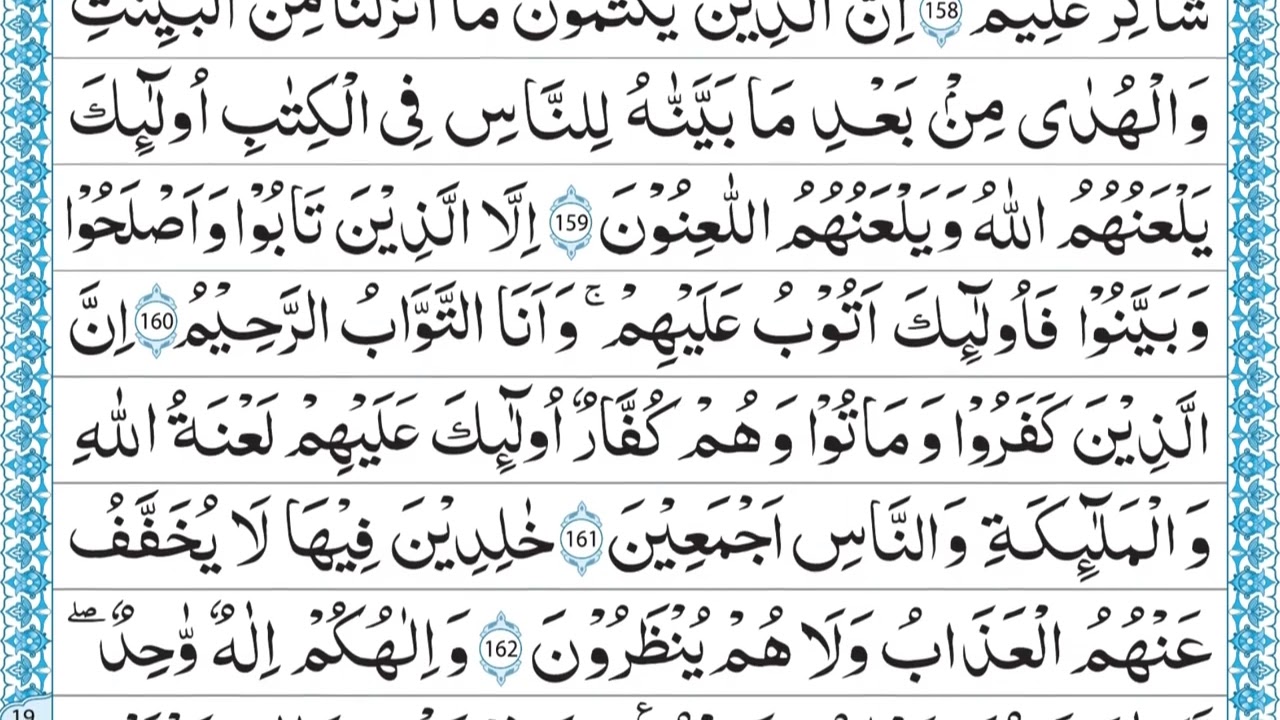 شَاكِرٌ عَلِيْمٌ 158 اِنَّ الَّذِيْنَ يَكْتُمُوْنَ مَاۤ اَنْزَلْنَا مِنَ الْبَيِّنٰتِ
وَالْهُدٰى مِنْۢ بَعْدِ مَا بَيَّنّٰهُ لِلنَّاسِ فِى الْكِتٰبِ اُولٰٓئِكَ
يَلْعَنُهُمُ اللّٰهُ وَيَلْعَنُهُمُ اللّٰعِنُوْنَ 159 اِلَّا الَّذِيْنَ تَابُوْا وَاَصْلَحُوْا
وَبَيَّنُوْا فَاُولٰٓئِكَ اَتُوْبُ عَلَيْهِمْ ۚ وَاَنَا التَّوَّابُ الرَّحِيْمُ 160 اِنَّ
الَّذِيْنَ كَفَرُوْا وَمَاتُوْا وَهُمْ كُفَّارٌ اُولٰٓئِكَ عَلَيْهِمْ لَعْنَةُ اللّٰهِ
وَالْمَلٰٓئِكَةِ وَالنَّاسِ اَجْمَعِيْنَ 161 خٰلِدِيْنَ فِيْهَا لَا يُخَفَّفُ
عَنْهُمُ الْعَذَابُ وَلَا هُمْ يُنْظَرُوْنَ 162 وَاِلٰهُكُمْ اِلٰهٌ وَّاحِدٌ ۖ
19